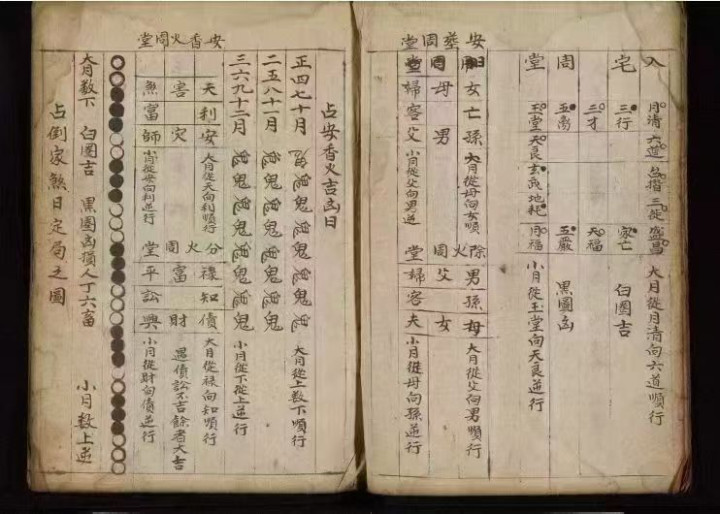 入宅周堂
月清 六道 三徒
大月從月清向六道順行
三行 家亡
白圈吉
三才 天福
五离 五嚴
黑圈凶
玉堂 天良 地耗 月福
小月從玉堂向天良逆行
安葬周堂
女母婦
亡 客
孫男父
大月從母向女順
小月從父向男逆
除火周堂
男父婦
孫 客
母女夫
大月從父向男順行
小月從母向孫逆行
占安香火吉凶日
正四七十月
鬼鬼鬼
大月從上數下順行
二五八十一月
鬼鬼鬼
三六九十二月
鬼鬼鬼鬼鬼
小月從下從上逆行
安香火周堂
天害魚
利 富
安灾師
大月從天向利順行
小月從安向利逆行
分火周堂
祿富平
知 訟
債財興
大月從祿向知順行
遇債訟不吉餘者大吉
小月從財向債逆行
大月數下 白圈吉 黑圈凶損人丁六畜 小月數上逆
占倒家煞日定局之圖